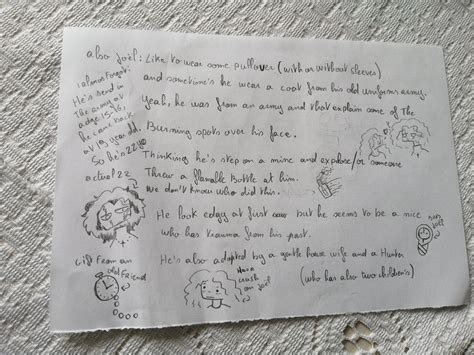 also Joël: Like to wear some pullover (with or without sleeves)
and sometime's he wear a coat from his old uniforms army.
Yeah, he was from an army and that explain some of The
Burning spots over his face.
Thinking he's step on a mine and explose/or someone
Threw a flamable Bottle at him.
we don't know who did this.
He look edgy at first saw but he seems to be a nice
who has trauma from his past.
He's also adopted by a gentle house wife and a Hunter
(who has also two children's)
i almost Forgot:
He's send in
The army at
adge 15-16,
he came back
at 19 year old.
So he's 22 yo
actual 22
Gift From an
old Friend
Have
crush
on Joël
Joël